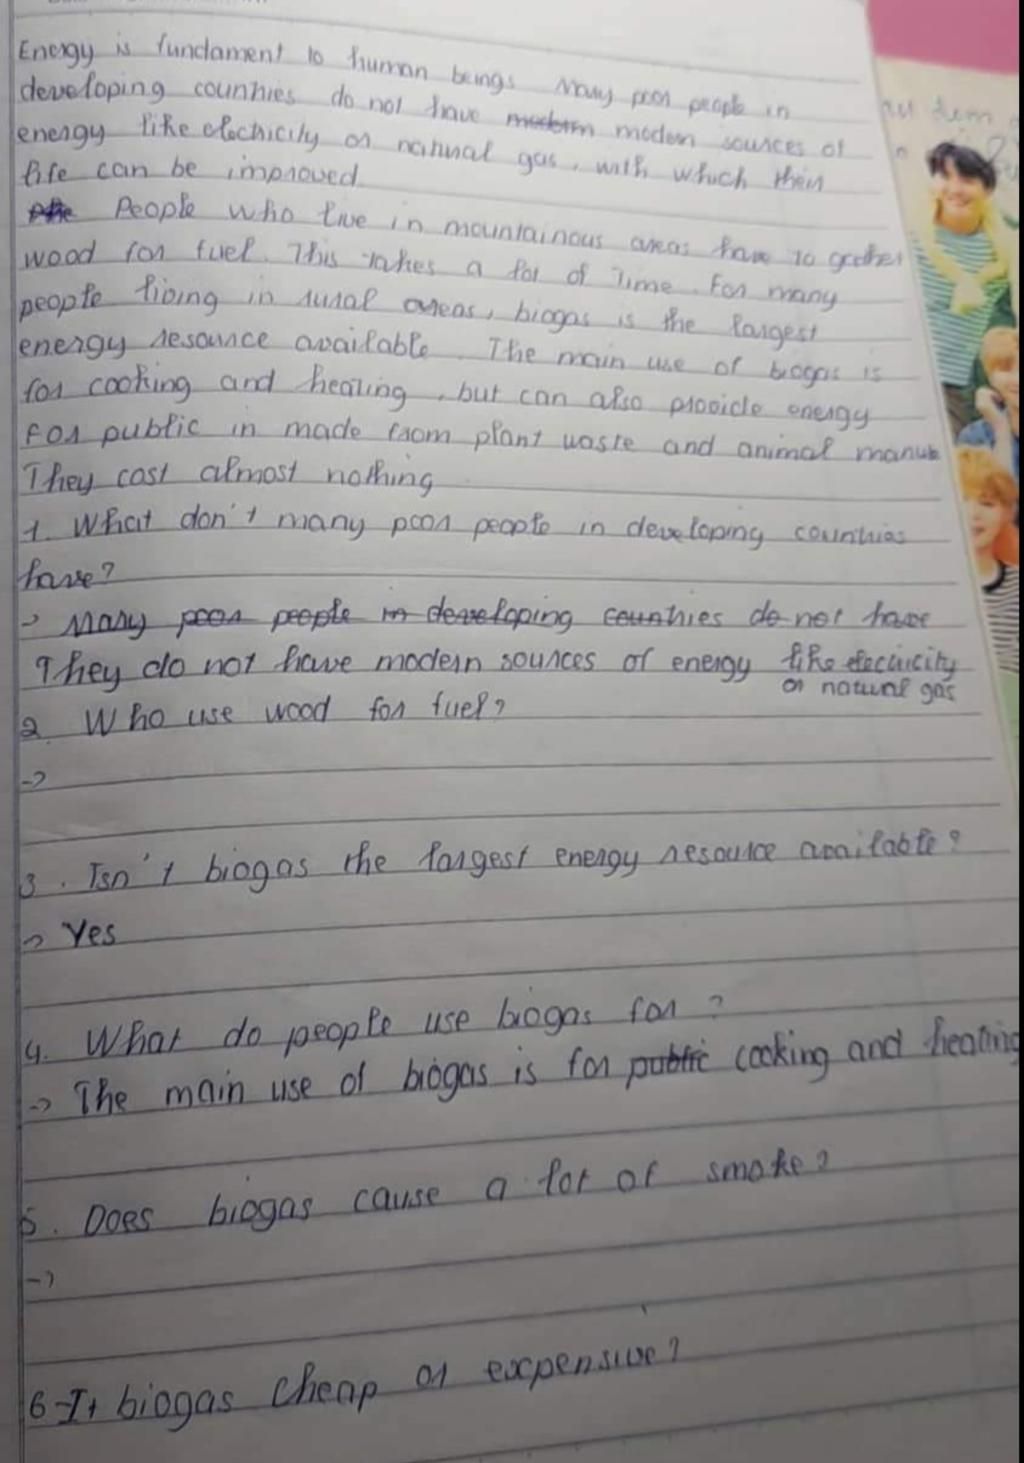 Energy is fundament to human beings Many poor people in
developing countries do not have modern modern sources of
energy like electricity or natural gas, with which their
life can be improved
People who live in mountainous areas have to gother
wood for fuel. This takes a lot of Time. For many
people living in rural areas, biogas is the largest
energy resource available. The main use of biogas is
for cooking and heating, but can also provide energy
For public in made from plant waste and animal manure
They cost almost nothing
1. What don't many poor people in developing countries
have?
-> Many poor people in developing countries do not have
They do not have modern sources of energy like electricity
or natural gas
2. Who use wood for fuel?
->
3. Isn't biogas the largest energy resource available?
-> Yes
4. What do people use biogas for?
-> The main use of biogas is for public cooking and heating
5. Does biogas cause a lot of smoke?
->
6-It biogas cheap or expensive?